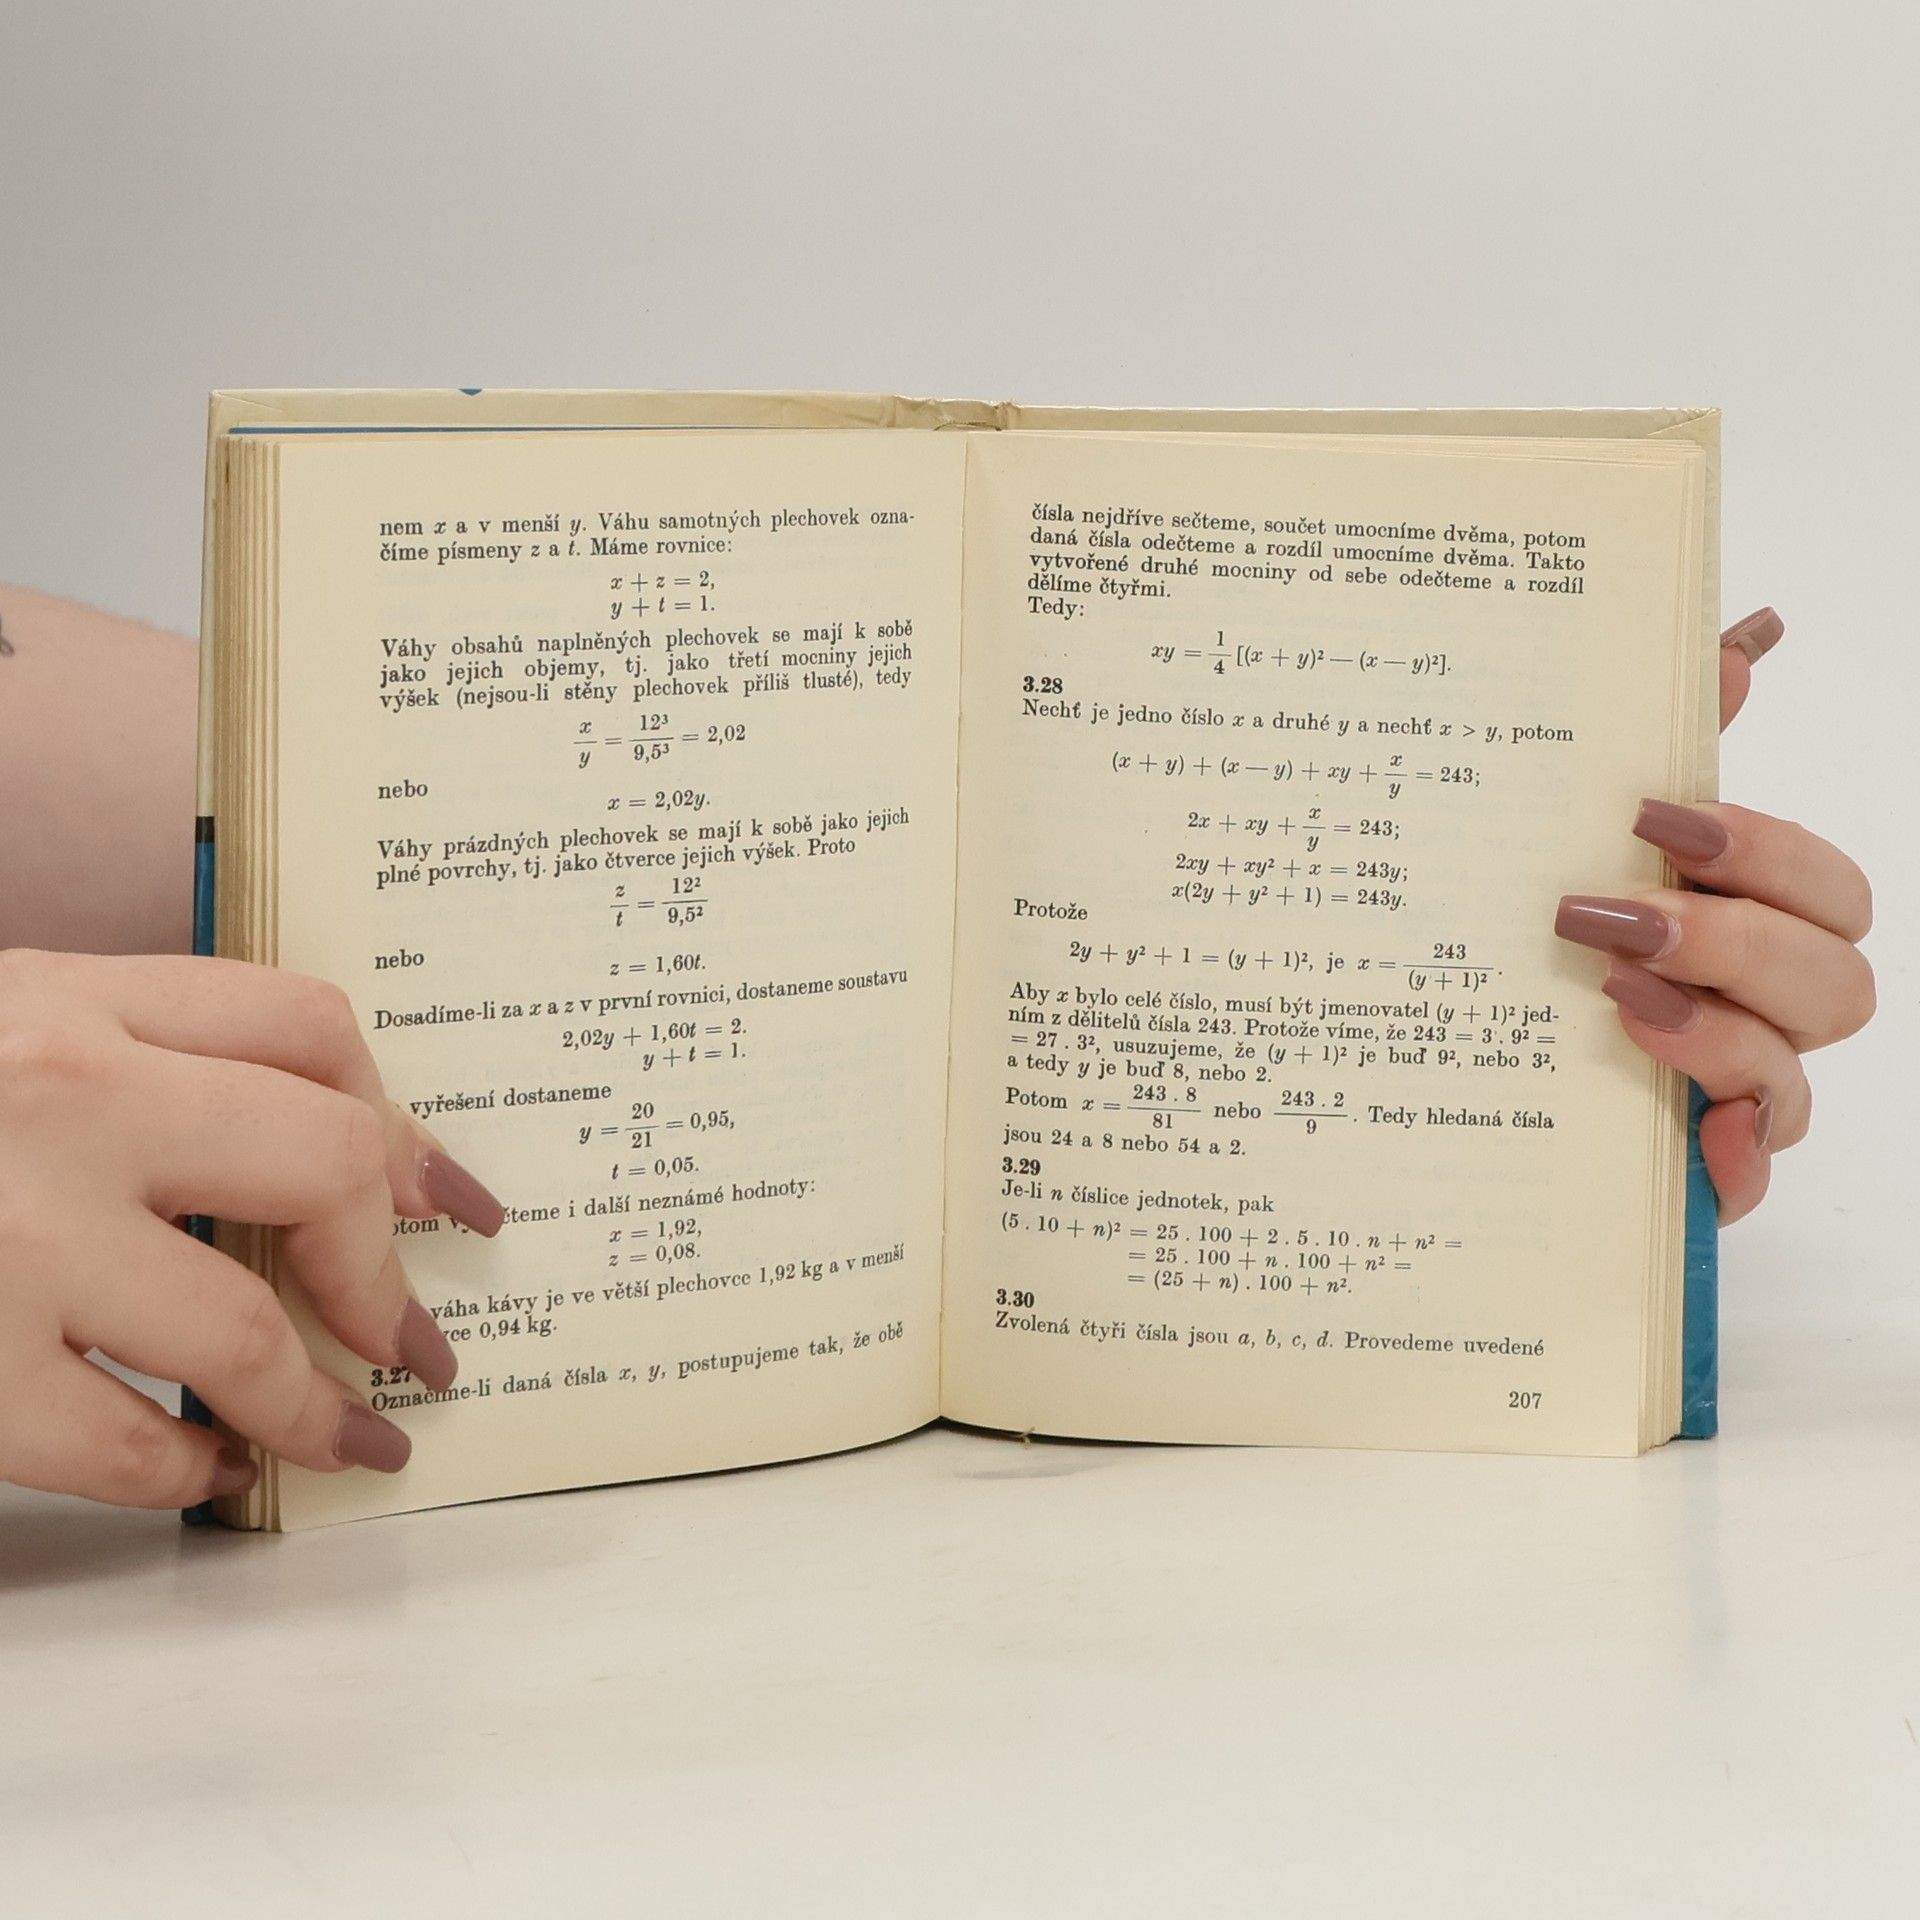 nem x a v menší y. Váhu samotných plechovek ozna-
číme písmeny z a t. Máme rovnice:
x + z = 2,
y + t = 1.
Váhy obsahů naplněných plechovek se mají k sobě
jako jejich objemy, tj. jako třetí mocniny jejich
výšek (nejsou-li stěny plechovek příliš tlusté), tedy
x/y = 12³/9,5³ = 2,02
nebo
x = 2,02y.
Váhy prázdných plechovek se mají k sobě jako jejich
plné povrchy, tj. jako čtverce jejich výšek. Proto
z/t = 12²/9,5²
nebo
z = 1,60t.
Dosadíme-li za x a z v první rovnici, dostaneme soustavu
2,02y + 1,60t = 2.
y + t = 1.
vyřešení dostaneme
y = 20/21 = 0,95,
t = 0,05.
další neznámé hodnoty:
x = 1,92,
z = 0,08.
váha kávy je ve větší plechovce 1,92 kg a v menší
0,94 kg.
3.27
Označíme-li daná čísla x, y, postupujeme tak, že obě
čísla nejdříve sečteme, součet umocníme dvěma, potom
daná čísla odečteme a rozdíl umocníme dvěma. Takto
vytvořené druhé mocniny od sebe odečteme a rozdíl
dělíme čtyřmi.
Tedy:
xy = 1/4 [(x + y)² — (x — y)²].
3.28
Nechť je jedno číslo x a druhé y a nechť x > y, potom
(x + y) + (x — y) + xy + x/y = 243;
2x + xy + x/y = 243;
2xy + xy² + x = 243y;
x(2y + y² + 1) = 243y.
Protože
2y + y² + 1 = (y + 1)², je x = 243/(y + 1)².
Aby x bylo celé číslo, musí být jmenovatel (y + 1)² jed-
ním z dělitelů čísla 243. Protože víme, že 243 = 3 . 9² =
= 27 . 3², usuzujeme, že (y + 1)² je buď 9², nebo 3²,
a tedy y je buď 8, nebo 2.
Potom x = 243 . 8/81 nebo 243 . 2/9. Tedy hledaná čísla
jsou 24 a 8 nebo 54 a 2.
3.29
Je-li n číslice jednotek, pak
(5 . 10 + n)² = 25 . 100 + 2 . 5 . 10 . n + n² =
= 25 . 100 + n . 100 + n² =
= (25 + n) . 100 + n².
3.30
Zvolená čtyři čísla jsou a, b, c, d. Provedeme uvedené
207